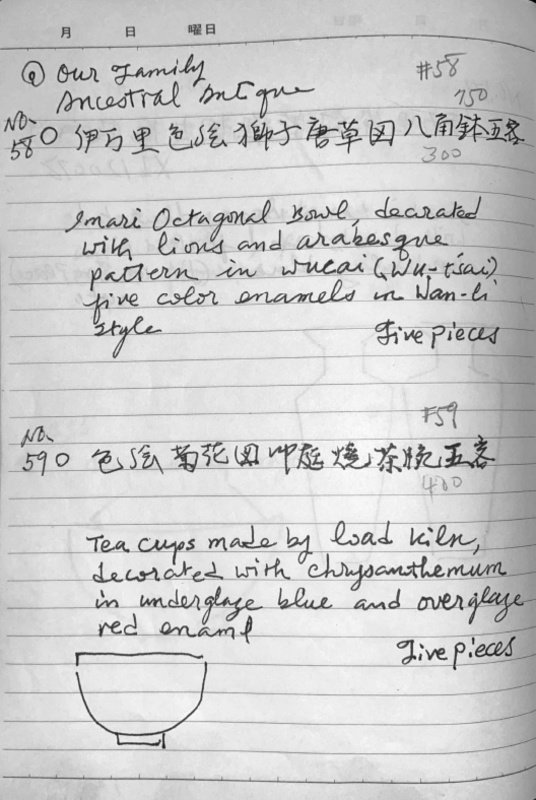 月 日 曜日
Our Family
#58
Ancestral Antique
150
No.
58 伊万里色絵獅子唐草図八角鉢五客
300
Imari Octagonal Bowl, decarated
with lions and arabesque
pattern in wucai (Wu-ts'ai)
five color enamels in Wan-li
style
Five pieces
#59
No.
59 色絵菊花図御庭焼茶碗五客
400
Tea cups made by load kiln,
decorated with chrysanthemum
in underglaze blue and overglaze
red enaml
Five pieces